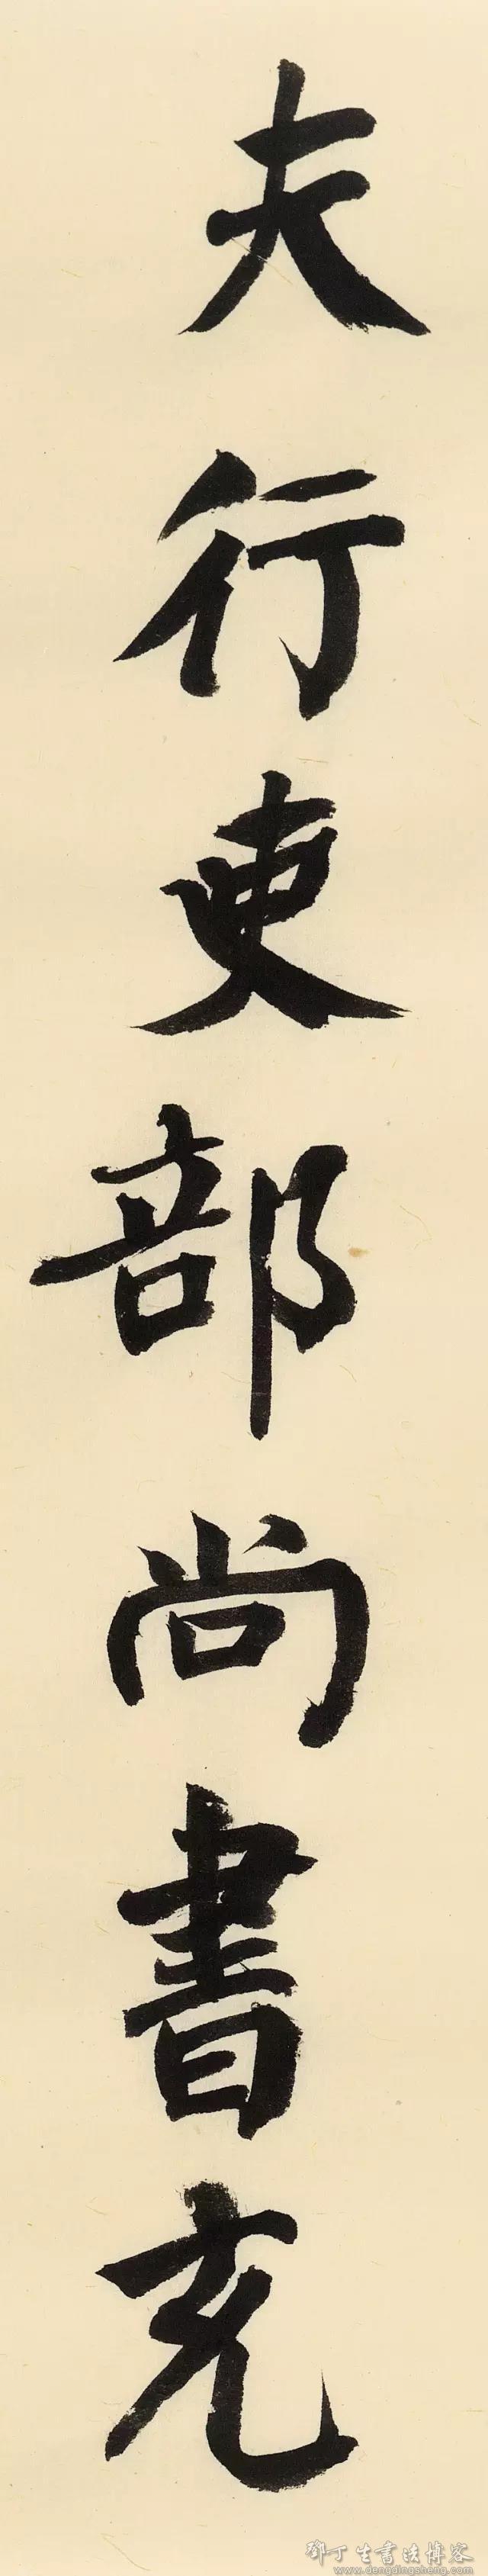 夫行吏部尚書充
鄧丁生書法博客
www.dengdingsheng.com